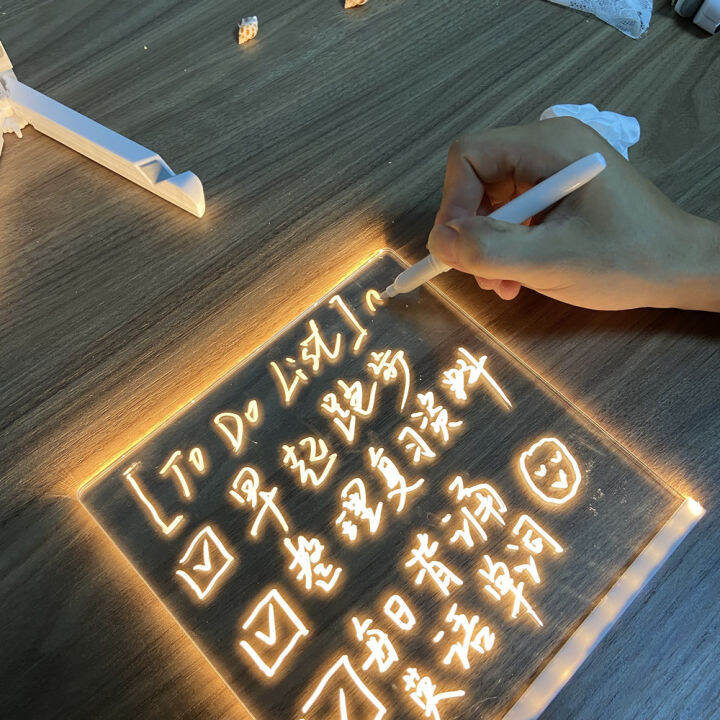 [To Do List]
☑ 早起跑步
☑ 整理复习资料
☑ 每日背诵
英语单词